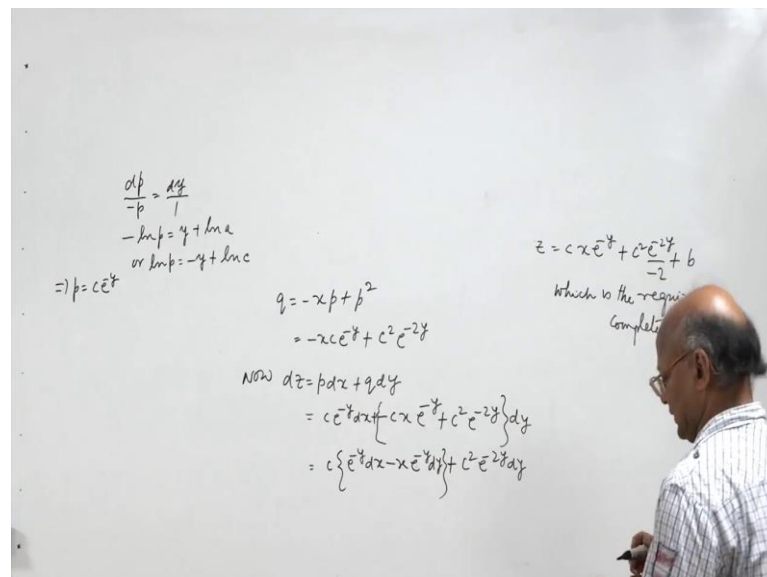 dp/-p = dy/1
-ln p = y + ln a
or ln p = -y + ln c
=) p = ce^-y
q = -xp + p^2
= -xce^-y + c^2 e^-2y
Now dz = pdx + qdy
= ce^-y dx + {-cx e^-y + c^2 e^-2y} dy
= c{e^-y dx - x e^-y dy} + c^2 e^-2y dy
z = cx e^-y + c^2 e^-2y/-2 + b
which is the